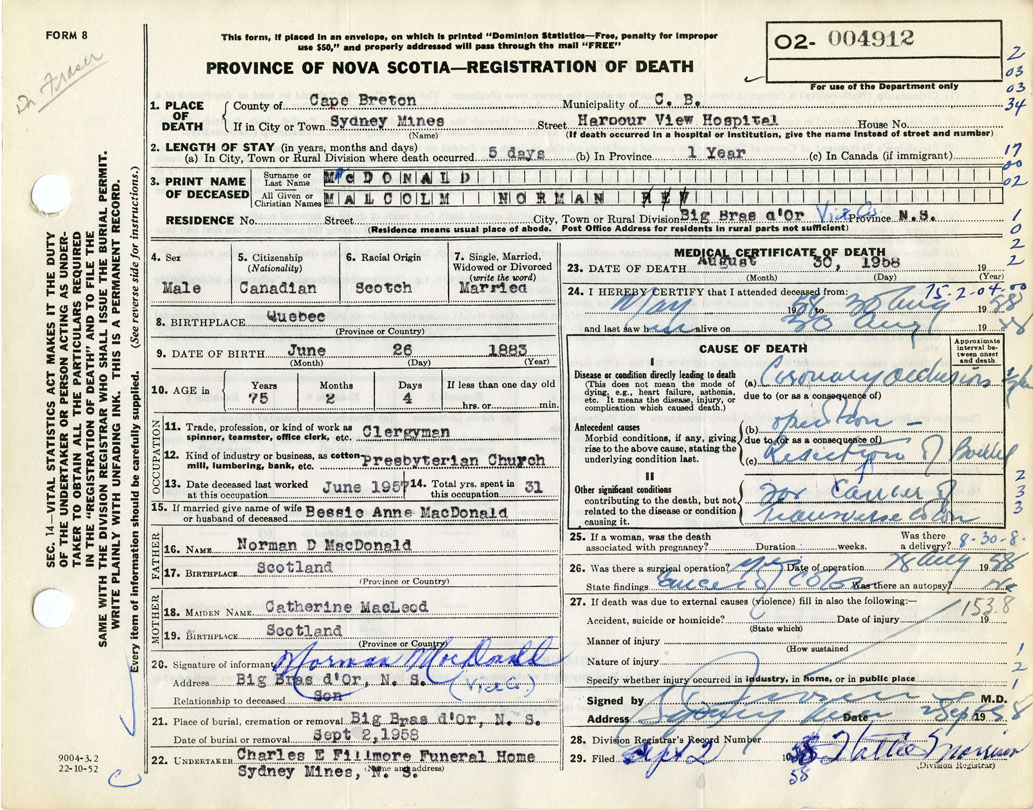 FORM 8
Dr. Fraser
This form, if placed in an envelope, on which is printed "Dominion Statistics—Free, penalty for improper
use $50," and properly addressed will pass through the mail "FREE"
PROVINCE OF NOVA SCOTIA—REGISTRATION OF DEATH
O2- 004912
For use of the Department only
2
03
03
34
1. PLACE OF DEATH
County of Cape Breton Municipality of C. B.
If in City or Town Sydney Mines Street Harbour View Hospital House No.
(Name) (If death occurred in a hospital or institution, give the name instead of street and number)
2. LENGTH OF STAY (in years, months and days)
(a) In City, Town or Rural Division where death occurred 5 days (b) In Province 1 Year (c) In Canada (if immigrant)
17
00
02
3. PRINT NAME OF DECEASED
Surname or Last Name McDONALD
All Given or Christian Names MALCOLM NORMAN REV
RESIDENCE No. Street City, Town or Rural Division Big Bras d'Or Vict Co. Province N.S.
(Residence means usual place of abode. Post Office Address for residents in rural parts not sufficient)
1
0
2
2
4. Sex
Male
5. Citizenship
(Nationality)
Canadian
6. Racial Origin
Scotch
7. Single, Married,
Widowed or Divorced
(write the word)
Married
8. BIRTHPLACE Quebec
(Province or Country)
9. DATE OF BIRTH June 26 1883
(Month) (Day) (Year)
10. AGE in
Years Months Days If less than one day old
75 2 4 hrs. or min.
OCCUPATION
11. Trade, profession, or kind of work as
spinner, teamster, office clerk, etc. Clergyman
12. Kind of industry or business, as cotton
mill, lumbering, bank, etc. Presbyterian Church
13. Date deceased last worked
at this occupation June 1957
14. Total yrs. spent in
this occupation 31
15. If married give name of wife
or husband of deceased Bessie Anne MacDonald
FATHER
16. NAME Norman D MacDonald
17. BIRTHPLACE Scotland
(Province or Country)
MOTHER
18. MAIDEN NAME Catherine MacLeod
19. BIRTHPLACE Scotland
(Province or Country)
20. Signature of informant Norman MacDonald
Address Big Bras d'Or, N. S. (Vict Co.)
Relationship to deceased Son
21. Place of burial, cremation or removal Big Bras d'Or, N. S.
Date of burial or removal Sept 2,1958
22. UNDERTAKER Charles E Fillmore Funeral Home
Sydney Mines, N. S.
(Name and address)
MEDICAL CERTIFICATE OF DEATH
23. DATE OF DEATH August 30, 1958 19
(Month) (Day) (Year)
24. I HEREBY CERTIFY that I attended deceased from: 75-2-04-00
May 1958 to 30 Aug 1958
and last saw him alive on 30 Aug 1958
CAUSE OF DEATH
Approximate
interval be-
tween onset
and death
I
Disease or condition directly leading to death
(This does not mean the mode of
dying, e.g., heart failure, asthenia,
etc. It means the disease, injury, or
complication which caused death.)
(a) Coronary occlusion
due to (or as a consequence of)
Antecedent causes
Morbid conditions, if any, giving
rise to the above cause, stating the
underlying condition last.
(b) operation —
due to (or as a consequence of)
(c) Resection of Bowel
II
Other significant conditions
contributing to the death, but not
related to the disease or condition
causing it.
for Cancer of
Transverse Colon
2
3
3
3
25. If a woman, was the death
associated with pregnancy? Duration weeks. Was there
a delivery? 8-30-8-
26. Was there a surgical operation? yes Date of operation 28 Aug 1958
State findings Cancer of Colon Was there an autopsy? No
27. If death was due to external causes (violence) fill in also the following:—
153.8
Accident, suicide or homicide? Date of injury 19
(State which)
Manner of injury
(How sustained
Nature of injury
Specify whether injury occurred in industry, in home, or in public place
1
2
1
Signed by M.D.
Address Sydney Mines Date 2 Sept 1958
28. Division Registrar's Record Number
29. Filed Sept 2 1958 Hattie Morrison
58
(Division Registrar)
SEC. 14—VITAL STATISTICS ACT MAKES IT THE DUTY
OF THE UNDERTAKER OR PERSON ACTING AS UNDER-
TAKER TO OBTAIN ALL THE PARTICULARS REQUIRED
IN THE "REGISTRATION OF DEATH" AND TO FILE THE
SAME WITH THE DIVISION REGISTRAR WHO SHALL ISSUE THE BURIAL PERMIT.
WRITE PLAINLY WITH UNFADING INK. THIS IS A PERMANENT RECORD.
Every item of information should be carefully supplied. (See reverse side for instructions.)
9004-3.2
22-10-52
C